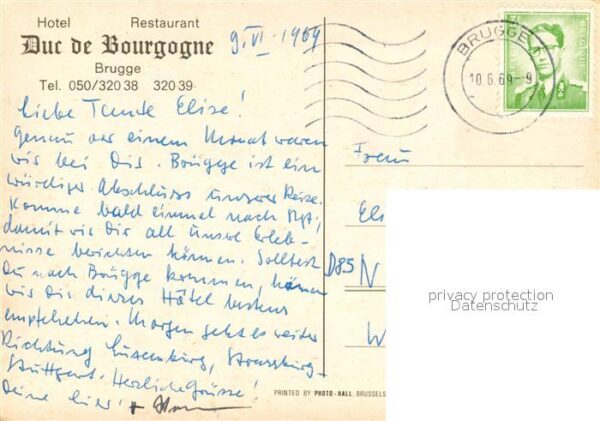 Hotel Restaurant
Duc de Bourgogne
Brugge
Tel. 050/320 38 320 39
9. VI. 1969
BRUGGE
10.6.69-9
BELGIQUE
Liebe Tante Elise!
Genau vor einem Monat waren
wir bei Dir. Brügge ist ein
würdiger Abschluss unserer Reise.
Komme bald einmal nach
damit wir Dir all unsre Erleb-
nisse berichten können. Solltest
Du nach Brügge kommen, können
wir Dir dieses Hotel bestens
empfehlen. Morgen geht es weiter
Richtung Luxemburg, Strassburg-
Stuttgart. Herzliche Grüsse!
Deine
Frau
El
D85 N
W
privacy protection
Datenschutz
PRINTED BY PHOTO-HALL, BRUSSELS